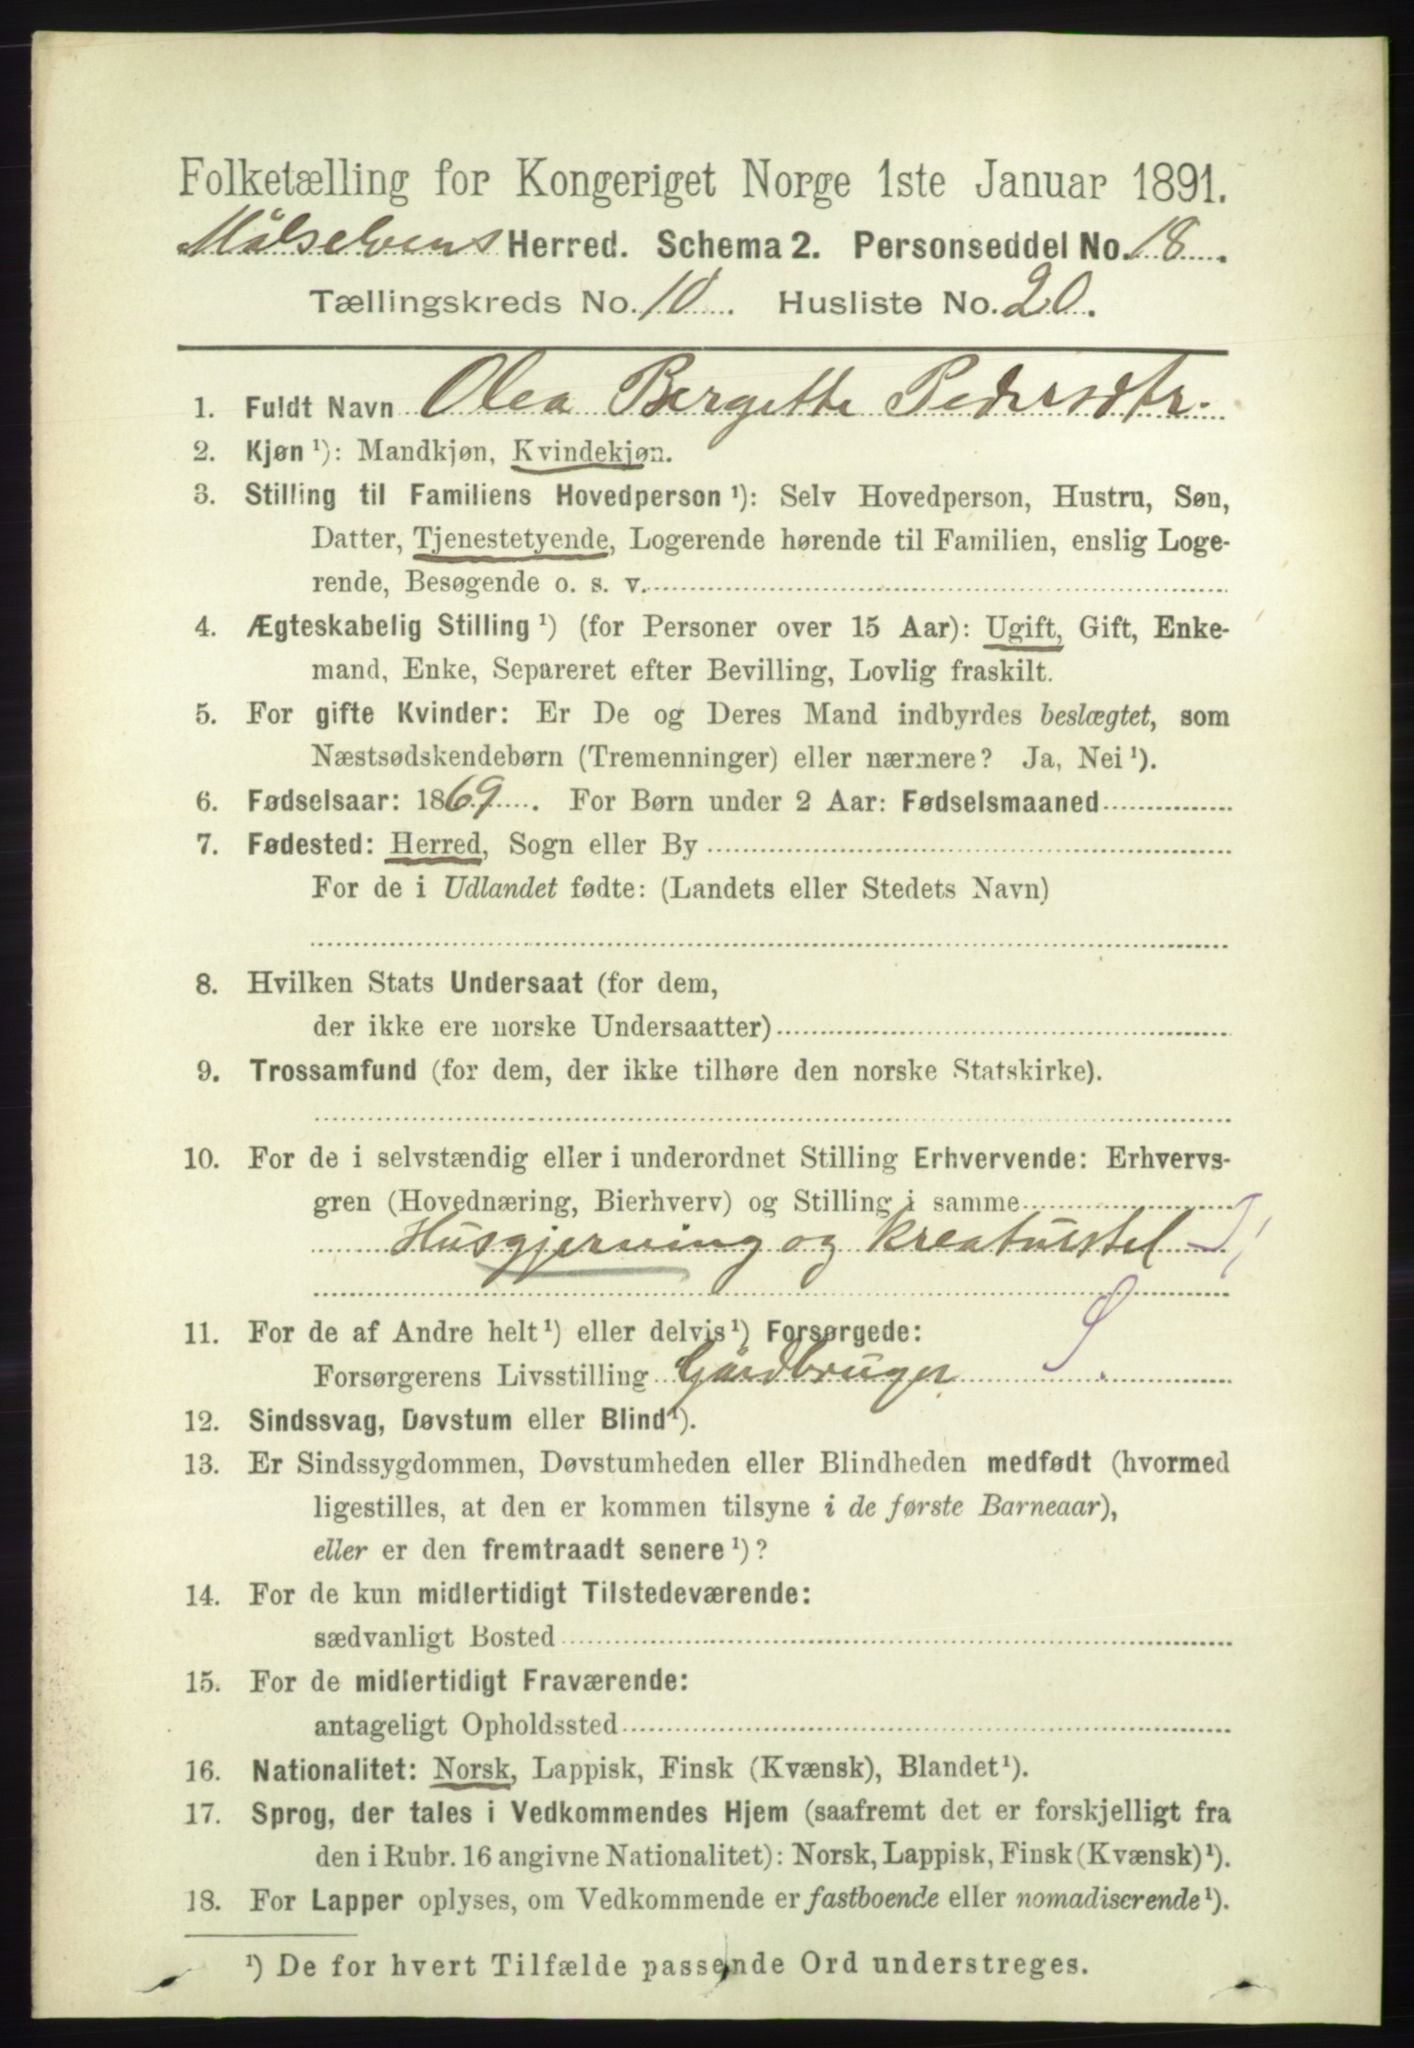 Folketælling for Kongeriget Norge 1ste Januar 1891.
Målselvens Herred. Schema 2. Personseddel No. 18.
Tællingskreds No. 10. Husliste No. 20.
1. Fuldt Navn Olea Bergette Pedersdtr.
2. Kjøn ¹): Mandkjøn, Kvindekjøn.
3. Stilling til Familiens Hovedperson ¹): Selv Hovedperson, Hustru, Søn,
Datter, Tjenestetyende, Logerende hørende til Familien, enslig Loge-
rende, Besøgende o. s. v.
4. Ægteskabelig Stilling ¹) (for Personer over 15 Aar): Ugift, Gift, Enke-
mand, Enke, Separeret efter Bevilling, Lovlig fraskilt.
5. For gifte Kvinder: Er De og Deres Mand indbyrdes beslægtet, som
Næstsødskendebørn (Tremenninger) eller nærmere? Ja, Nei ¹).
6. Fødselsaar: 1869. For Børn under 2 Aar: Fødselsmaaned
7. Fødested: Herred, Sogn eller By
For de i Udlandet fødte: (Landets eller Stedets Navn)
8. Hvilken Stats Undersaat (for dem,
der ikke ere norske Undersaatter)
9. Trossamfund (for dem, der ikke tilhøre den norske Statskirke).
10. For de i selvstændig eller i underordnet Stilling Erhvervende: Erhvervs-
gren (Hovednæring, Bierhverv) og Stilling i samme
Husgjerning og kreaturstel
11. For de af Andre helt ¹) eller delvis ¹) Forsørgede:
Forsørgerens Livsstilling Gårdbruger
12. Sindssvag, Døvstum eller Blind ¹).
13. Er Sindssygdommen, Døvstumheden eller Blindheden medfødt (hvormed
ligestilles, at den er kommen tilsyne i de første Barneaar),
eller er den fremtraadt senere ¹)?
14. For de kun midlertidigt Tilstedeværende:
sædvanligt Bosted
15. For de midlertidigt Fraværende:
antageligt Opholdssted
16. Nationalitet: Norsk, Lappisk, Finsk (Kvænsk), Blandet ¹).
17. Sprog, der tales i Vedkommendes Hjem (saafremt det er forskjelligt fra
den i Rubr. 16 angivne Nationalitet): Norsk, Lappisk, Finsk (Kvænsk) ¹).
18. For Lapper oplyses, om Vedkommende er fastboende eller nomadiserende ¹).
¹) De for hvert Tilfælde passende Ord understreges.